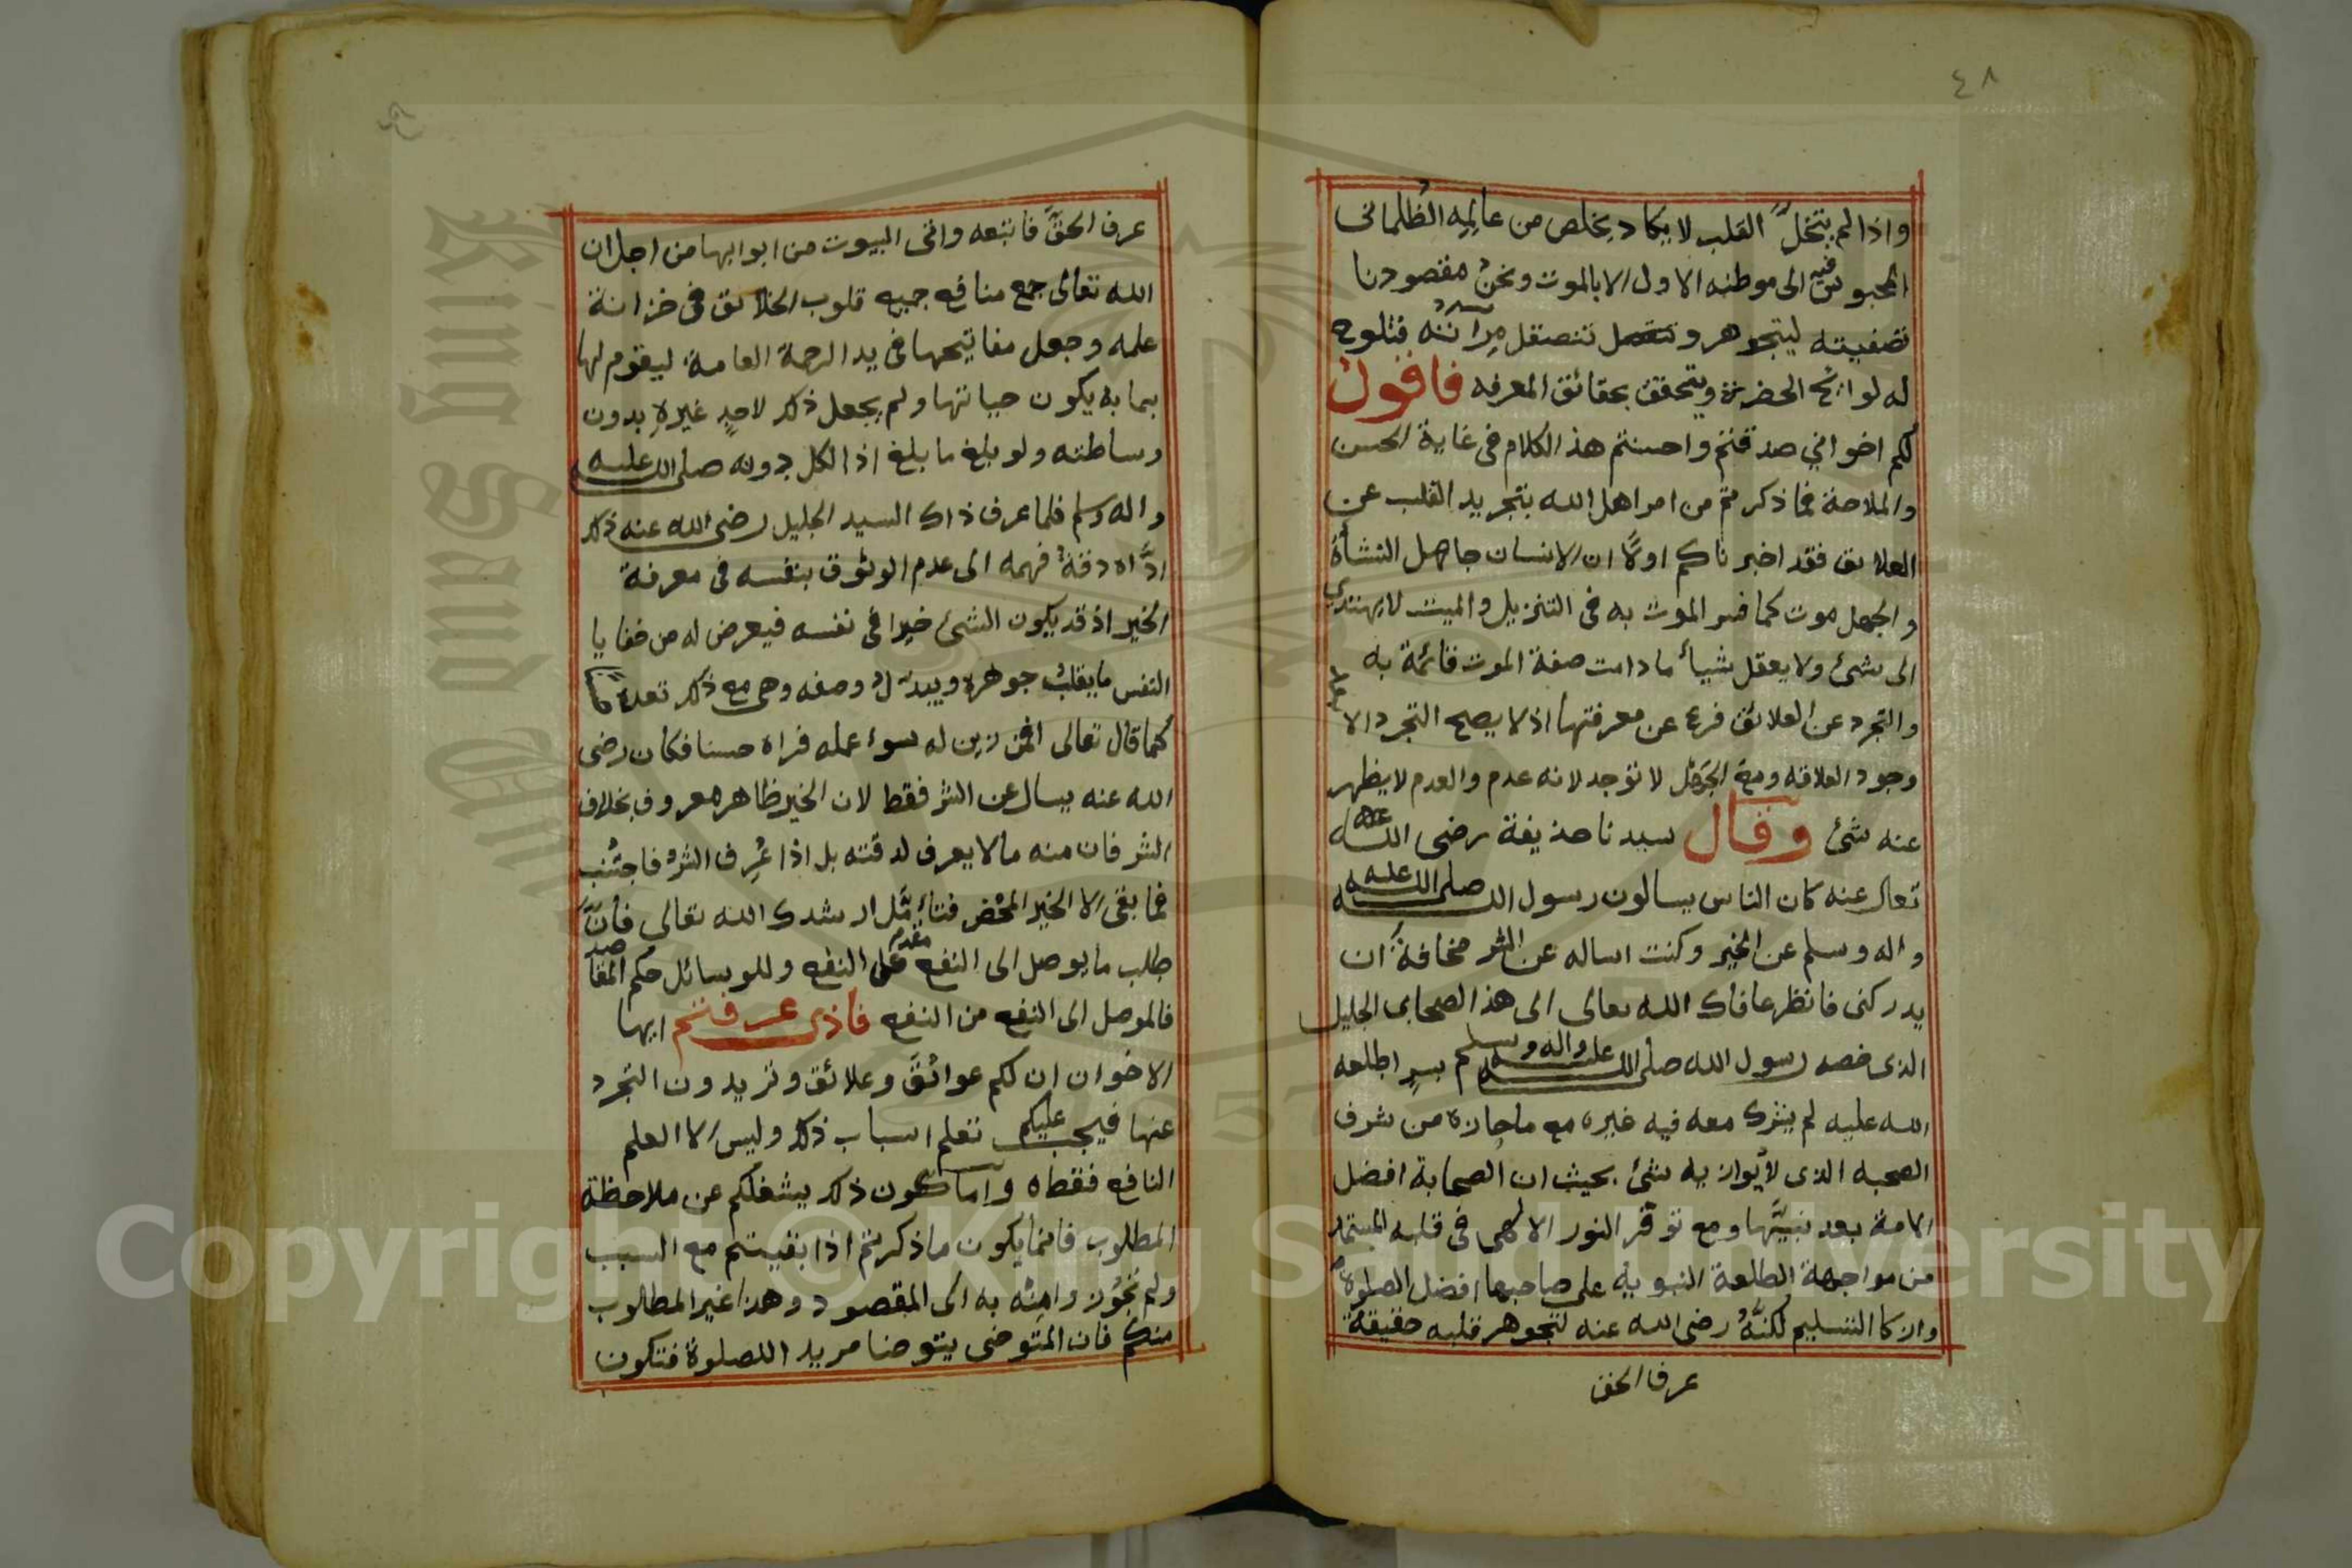 ٤٨
واذا لم يتخلَّ القلب لا يكاد يخلص من عالمه الظلمانى
المحبوس فيه الى موطنه الاول الا بالموت ونحن مقصودنا
تصفيته ليتجوهر و تنصقل مرآته فتلوح
له لوايح الحضرة ويتحقق بحقائق المعرفه فاقول
لكم اخوانى صدقتم واحسنتم هذ الكلام فى غاية الحسن
والملاحة فما ذكرتم من امر اهل الله بتجريد القلب عن
العلايق فقد اخبرناكم اولًا ان الانسان جاهل النشأة
والجهل موت كما فسر الموت به فى التنزيل والميت لا يهتدى
الى شىء ولا يعقل شيأ ما دامت صفة الموت قائمة به
والتجرد عن العلائق فرع عن معرفتها اذ لا يصح التجرد الا
وجود العلاقه ومع الجهل لا توجد لانه عدم والعدم لا يظهر
عنه شئ وقال سيدنا حذيفة رضى الله
تعالى عنه كان الناس يسالون رسول الله صلى الله عليه
واله وسلم عن الخير وكنت اساله عن الشر مخافة ان
يدركنى فانظر عافاك الله تعالى الى هذ الصحابى الجليل
الذى خصه رسول الله صلى الله عليه واله وسلم بسرٍ اطلعه
الله عليه لم يشرك معه فيه غيره مع ما حازه من شرف
الصحبه الذى لا يوازيه شئ بحيث ان الصحابة افضل
الامة بعد نبيّها ومع توقر النور الالهى فى قلبه المستمد
من مواجهة الطلعة النبويه على صاحبها افضل الصلوة
وازكا التسليم لكنَّه رضى الله عنه لتجوهر قلبه حقيقة
عرف الحق
عرف الحقَّ فاتبعه واتى البيوت من ابوابها من اجل ان
الله تعالى جمع منافع جميع قلوب الخلائق فى خزانة
علمه وجعل مفاتيحها فى يد الرحمة العامة ليقوم لها
بما به يكون حياتها ولم يجعل ذلك لاحدٍ غيره بدون
وساطته ولو بلغ ما بلغ اذ الكل دونه صلى الله عليه
واله وسلم فلما عرف ذاك السيد الجليل رضى الله عنه ذلك
ادَّاه دقة فهمه الى عدم الوثوق بنفسه فى معرفة
الخير اذ قد يكون الشئ خيرا فى نفسه فيعرض له من خفايا
النفس ما يقلب جوهره ويبدّل وصفه وهى مع ذلك تعده
كما قال تعالى افمن زين له سوء عمله فراه حسنا فكان رضى
الله عنه يسال عن الشر فقط لان الخير ظاهر معروف بخلاف
الشر فان منه ما لا يعرف لدقته بل اذا عُرِف الشرُّ فاجتُنب
فما بقى الا الخير المحض فتأمَّل ارشدك الله تعالى فانَّ
طلب ما يوصل الى النفع مقدم على النفع وللوسائل حكم المقاصد
فالموصل الى النفع من النفع فاذى عرفتم ايها
الاخوان ان لكم عوائقَ وعلائق وتريدون التجرد
عنها فيجب عليكم تعلم اسباب ذلك وليس الا العلم
النافع فقط واما كون ذلك يشغلكم عن ملاحظة
المطلوب فانما يكون ما ذكرتم اذا بقيتم مع السبب
ولم تجوزوا منه به الى المقصود وهذا غير المطلوب
منكم فان المتوضى يتوضا مريد اللصلوة فتكون